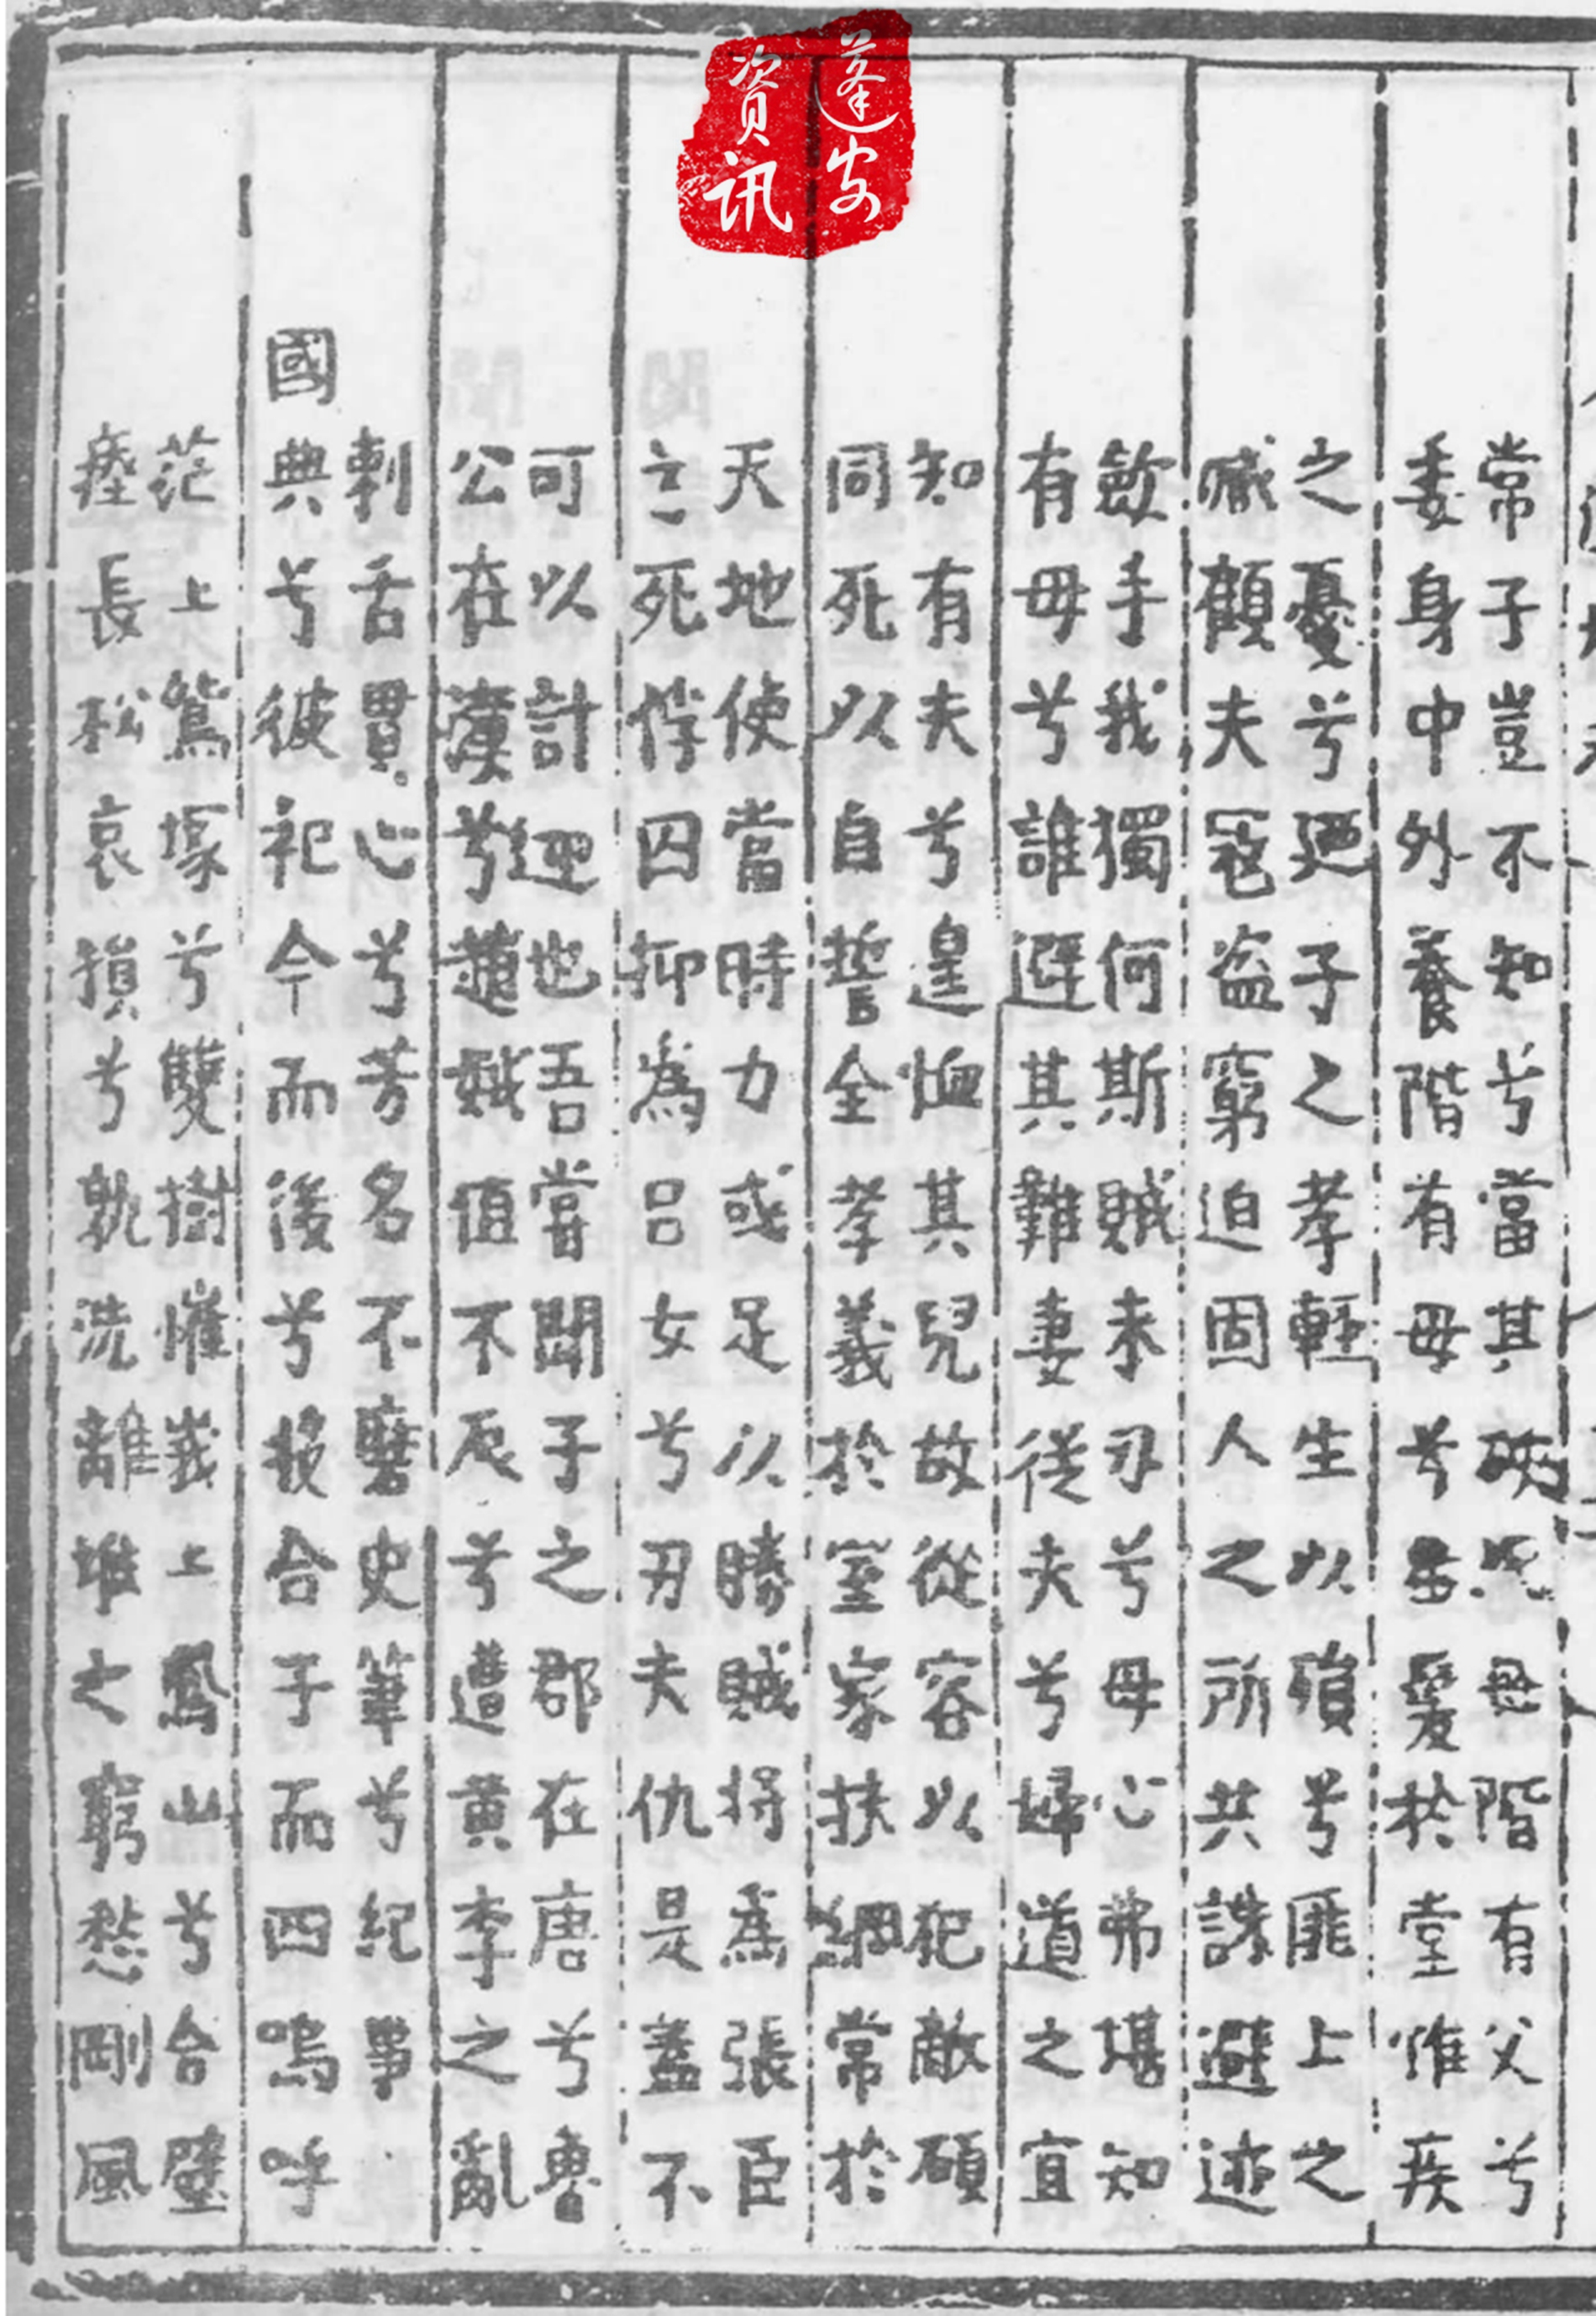 蓬安
資讯
常子豈不知兮當其破思母階有父兮
委身中外養階有母兮重愛於堂惟疾
之憂兮廼子之孝輕生以殞兮匪上之
臧顧夫冦盗窮迫固人之所共誅避迹
斂手我獨何斯賊未刃兮母心弗堪知
有母兮誰避其難妻従夫兮婦道之宜
知有夫兮遑恤其兒故從容以犯敵碩
同死以自誓全孝義於室家扶綱常於
天地使當時力或足以勝賊将為張臣
之死俘囚抑為呂女兮刃夫仇是蓋不
可以計迎也吾嘗聞子之郡在唐兮魯
公在薻兮趙娥值不辰兮遭黄李之亂
刺舌貫心兮芳名不磨史筆兮紀事
國典兮彼祀今而後兮接合子而四嗚呼
茫上鴛塚兮雙樹慛義上鳳山兮合璧
瘞長松哀損兮孰洗離堆之窮愁剛風